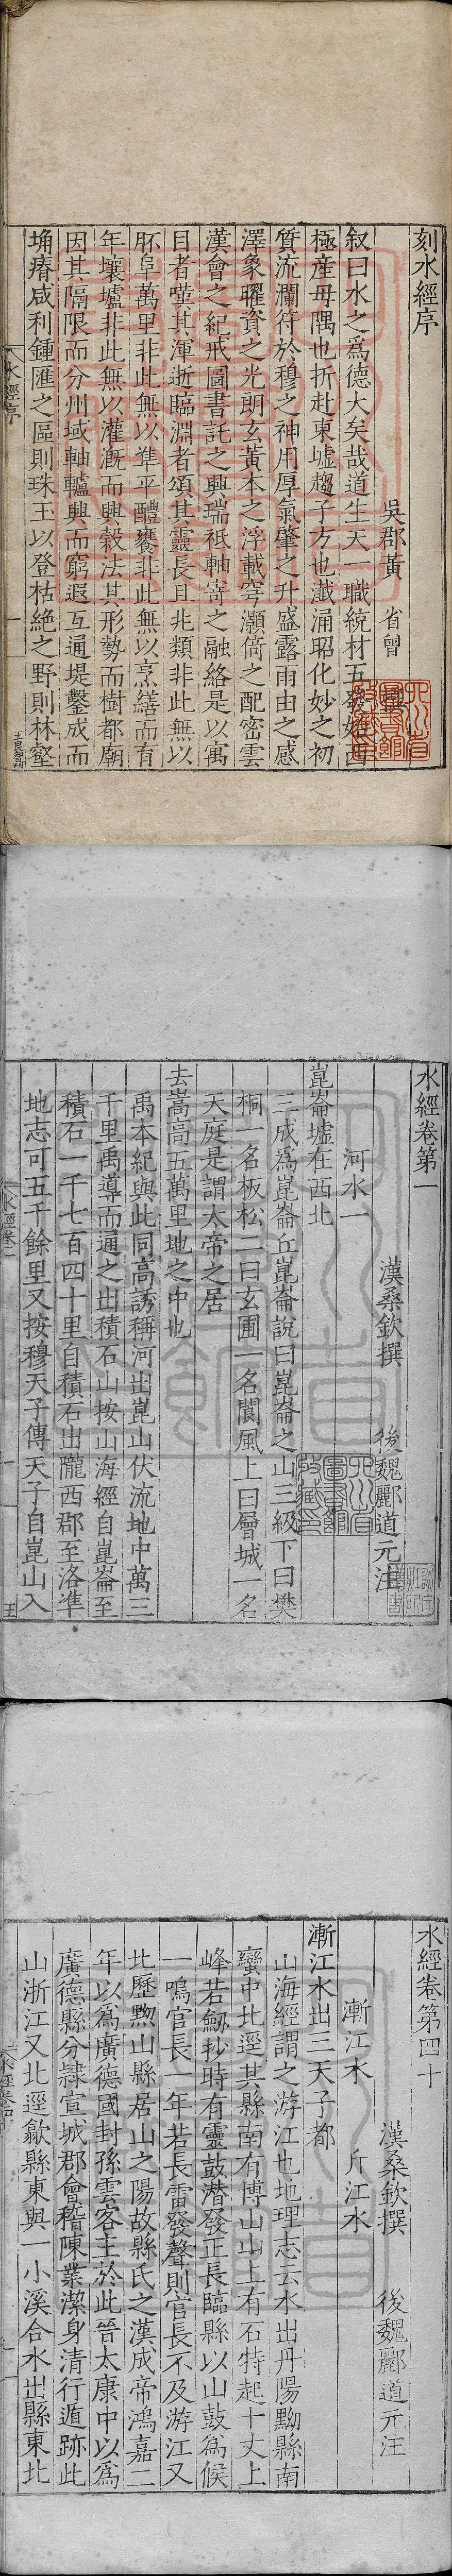 刻水經序
吳郡黃 省曾 撰
叙曰水之爲德大矣哉道生天一職統材五發始西
極産毋隅也折赴東墟趨子方也瀸涌昭化妙之初
質流瀾符於穆之神用厚氣肇之升盛露雨由之感
澤象曜資之光朗玄黃本之浮載穹灝倚之配密雲
漢會之紀戒圖書託之興瑞祗軸寄之融絡是以寓
目者嘆其渾逝臨淵者頌其靈長且兆類非此無以
胚阜萬里非此無以凖平醴饔非此無以烹繕而育
年壤墟非此無以灌漑而興穀法其形勢而樹都廟
因其隔限而分州域軸轤興而窮遐互通堤鑿成而
埆瘠咸利鍾匯之區則珠玉以登枯絶之野則林壑
水經序
一
水經卷第一
漢桑欽撰 後魏酈道元注
河水一
崑崙墟在西北
三成爲崑崙丘崑崙說曰崑崙之山三級下曰樊
桐一名板松二曰玄圃一名閬風上曰層城一名
天庭是謂太帝之居
去嵩高五萬里地之中也
禹本紀與此同高誘稱河出崑山伏流地中萬三
千里禹導而通之出積石山按山海經自崑崙至
積石一千七百四十里自積石出隴西郡至洛凖
地志可五千餘里又按穆天子傳天子自崑山入
水經卷一
一
王
水經卷第四十
漢桑欽撰 後魏酈道元注
漸江水 斤江水
漸江水出三天子都
山海經謂之浙江也地理志云水出丹陽黝縣南
蠻中北逕其縣南有博山山上有石特起十丈上
峰若劒抄時有靈鼓潜發正長臨縣以山鼓爲候
一鳴官長一年若長雷發聲則官長不及游江又
北歷黝山縣居山之陽故縣氏之漢成帝鴻嘉二
年以爲廣德國封孫雲客主於此晉太康中以爲
廣德縣分隷宣城郡會稽陳業潔身清行遁跡此
山浙江又北逕歙縣東與一小溪合水出縣東北
水經卷四十